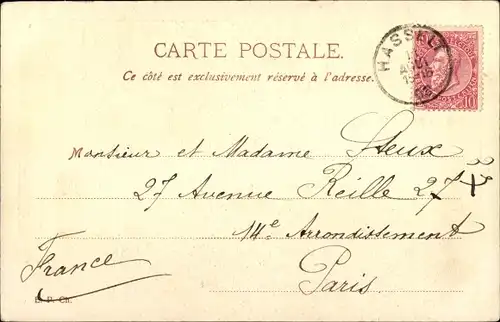 CARTE POSTALE.
Ce côté est exclusivement réservé à l'adresse.
HASSELT
AOUT
10
Monsieur et Madame Steux
27 Avenue Reille 27
14e Arrondissement
Paris
France
E. P. Ch.